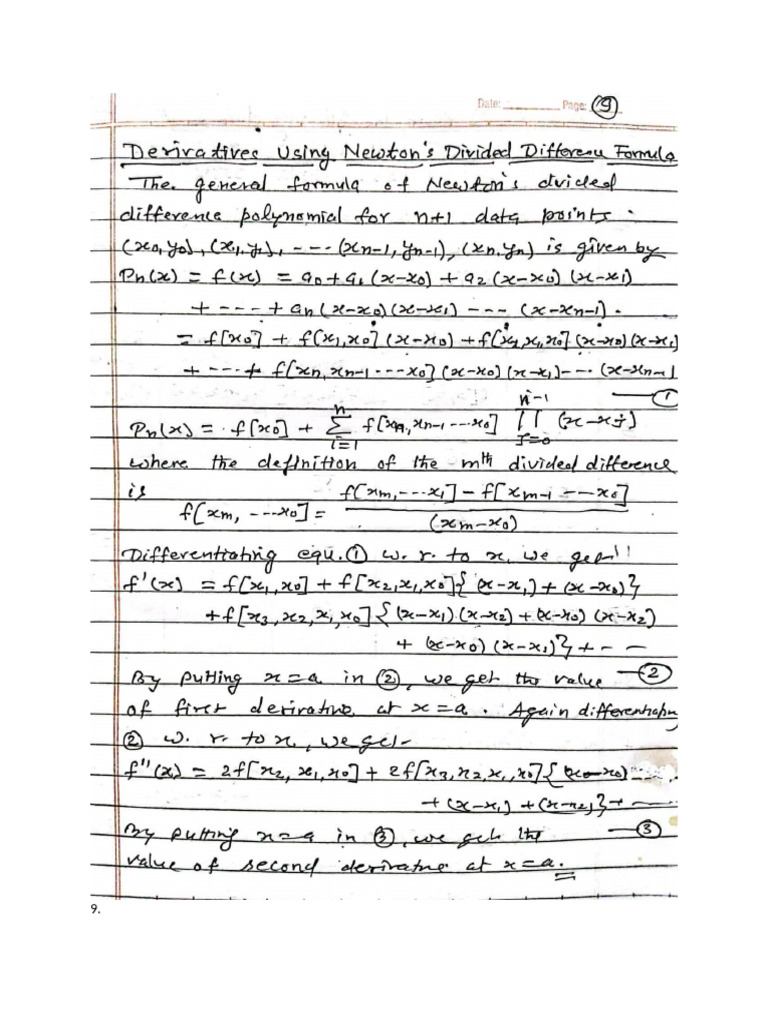 Date: ________ Page: 9
Derivatives Using Newton's Divided Difference Formula
The general formula of Newton's divided
difference polynomial for n+1 data points.
(x0,y0), (x1,y1), ---- (xn-1, yn-1), (xn,yn) is given by
Pn(x) = f(x) = a0 + a1 (x-x0) + a2 (x-x0) (x-x1)
+ ---- + an (x-x0) (x-x1) ---- (x-xn-1).
= f[x0] + f[x1,x0] (x-x0) + f[x2,x1,x0] (x-x0) (x-x1)
+ ---- + f[xn, xn-1 ---- x0] (x-x0) (x-x1) --- (x-xn-1)
—①
Pn(x) = f[x0] + Σ_{i=1}^{n} f[xn, xn-1 ---- x0] ∏_{j=0}^{n-1} (x-xj)
where the definition of the mth divided difference
is f[xm, ---- x0] = (f[xm, --- x1] - f[xm-1 --- x0]) / (xm-x0)
Differentiating equ. ① w. r. to x, we get
f'(x) = f[x1,x0] + f[x2,x1,x0] {(x-x1) + (x-x0)}
+ f[x3,x2,x1,x0] {(x-x1) (x-x2) + (x-x0) (x-x2)
+ (x-x0) (x-x1)} + - -
—②
By putting x=a in ②, we get the value
of first derivative at x=a. Again differentiating
② w. r. to x, we get
f''(x) = 2f[x2,x1,x0] + 2f[x3,x2,x1,x0] {(x-x0)
+ (x-x1) + (x-x2)} + ----
—③
By putting x=a in ③, we get the
value of second derivative at x=a.
9.